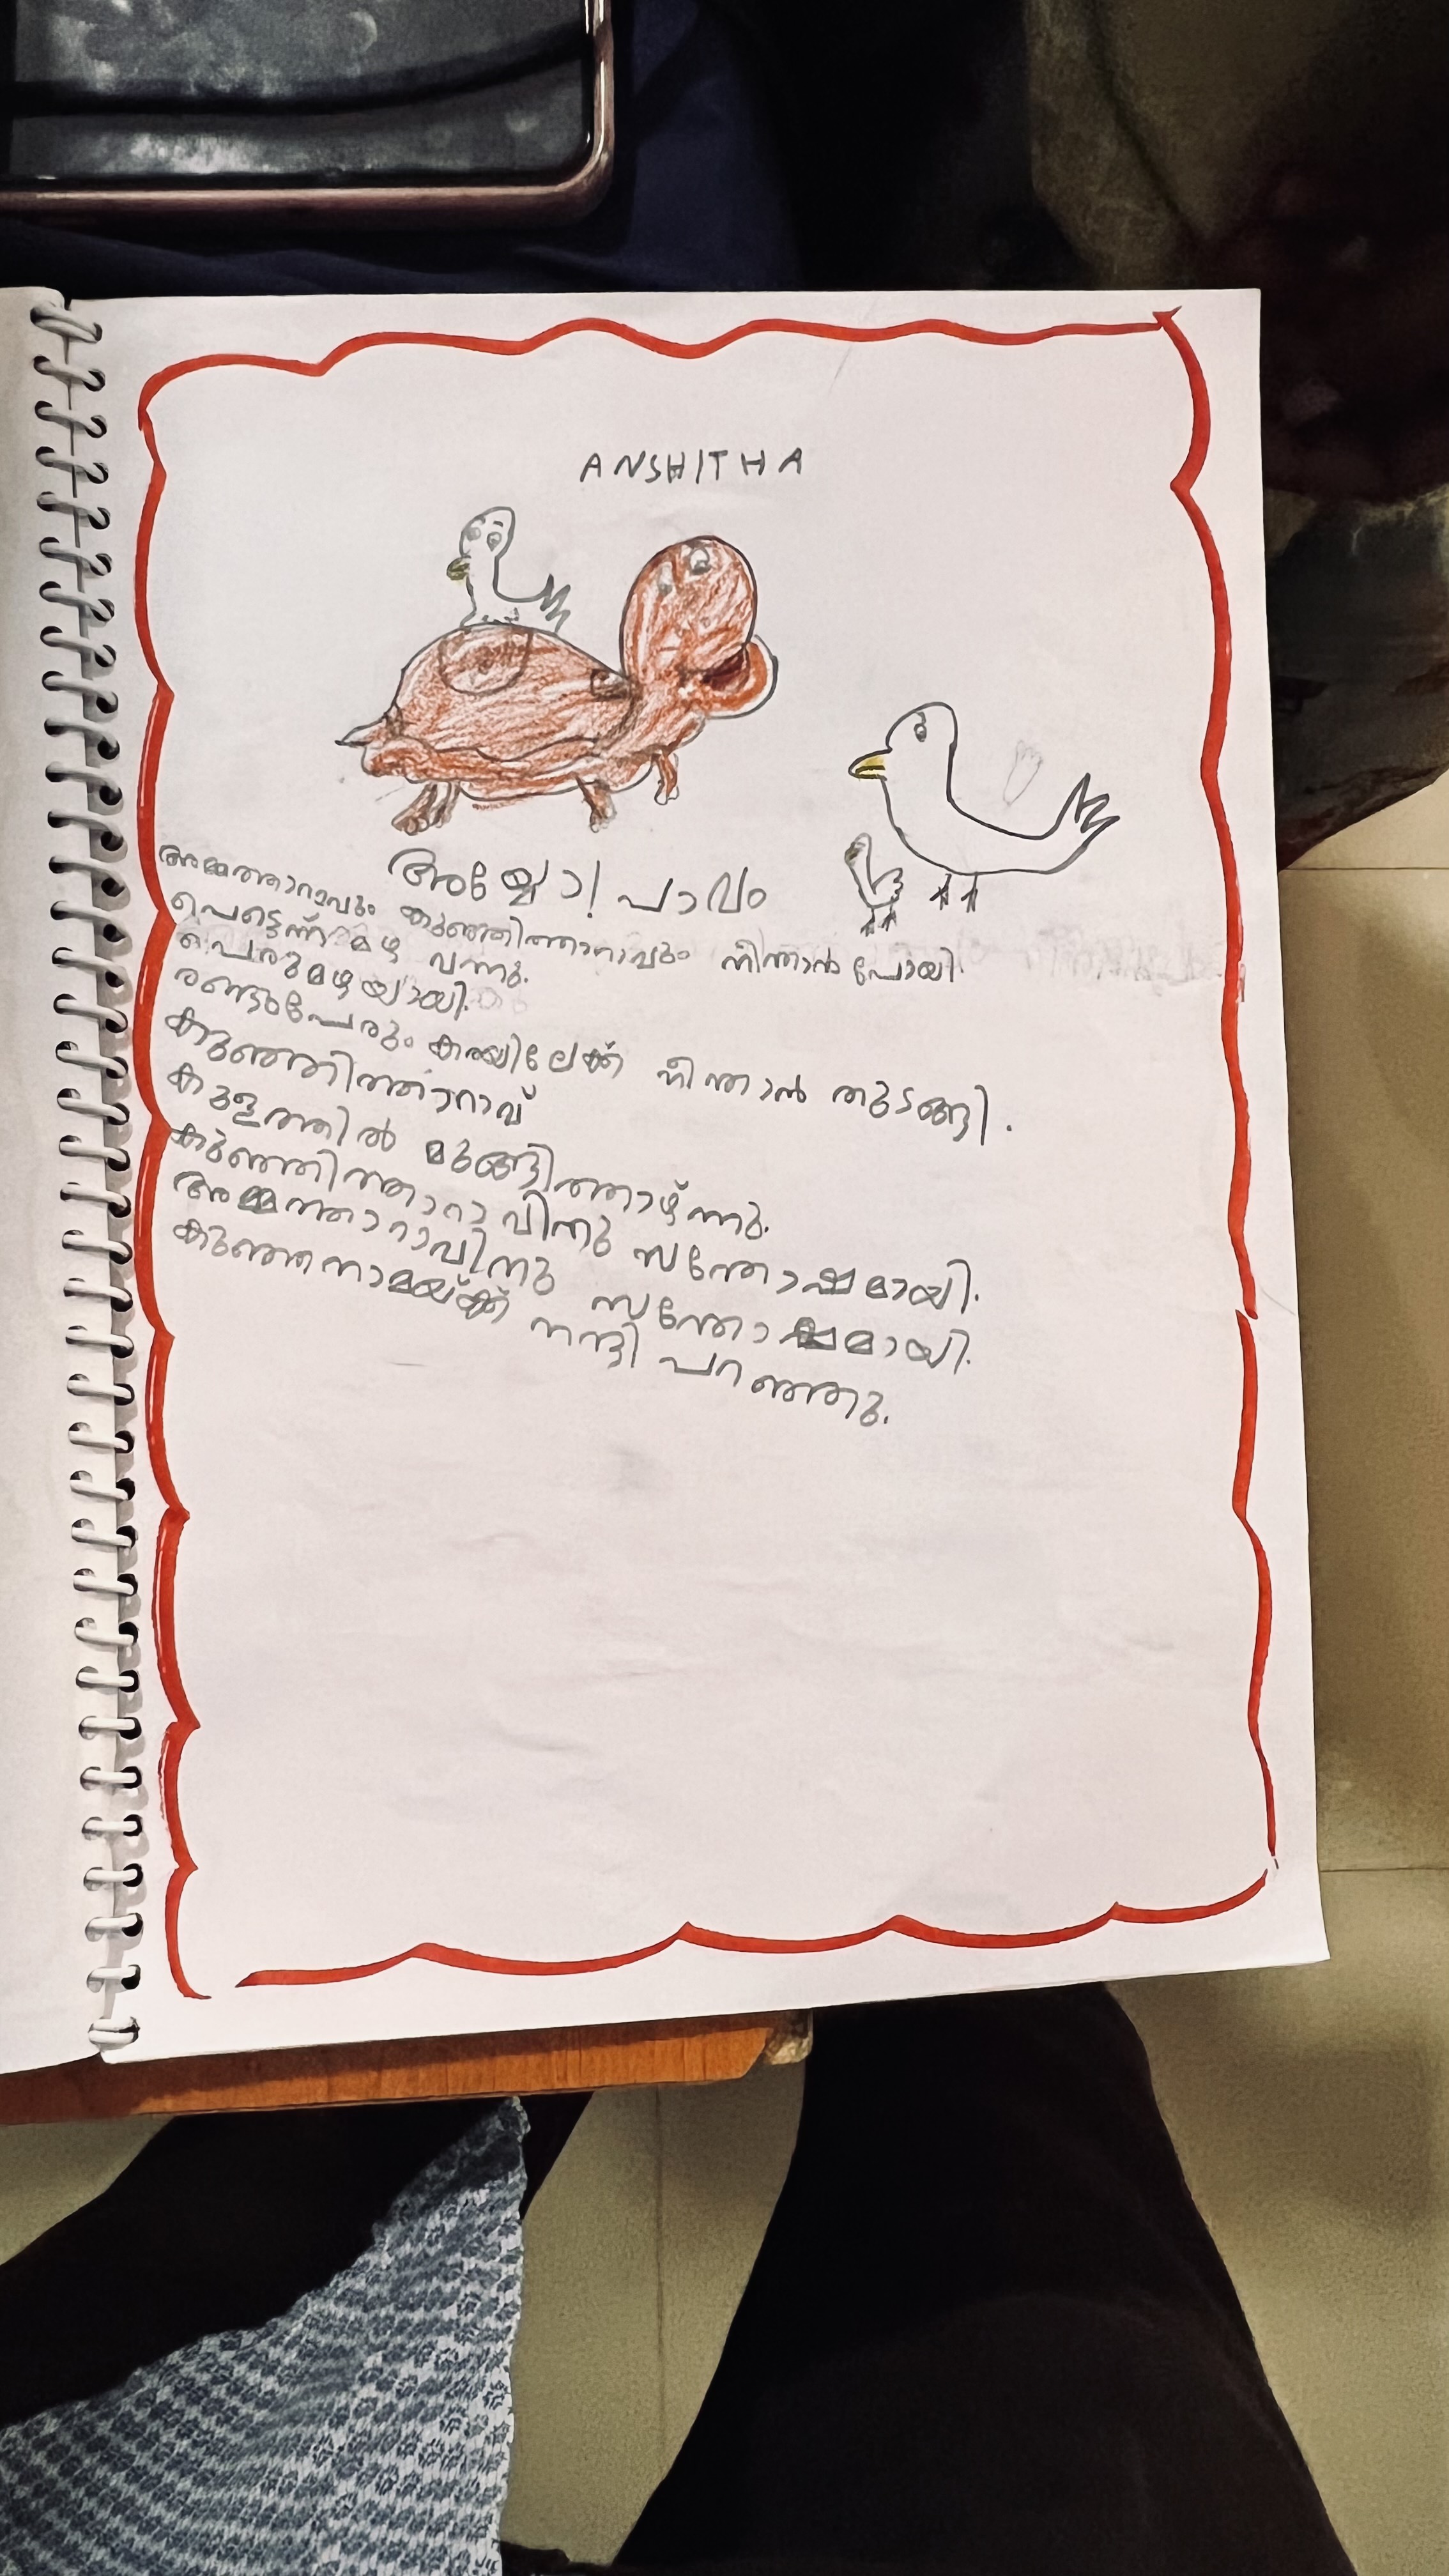 ANSHITHA
അയ്യോ! പാവം
അമ്മത്താറാവും കുഞ്ഞിത്താറാവും നീന്താൻ പോയി.
പെട്ടെന്ന് മഴ വന്നു.
പെരുമഴയായി.
രണ്ടുപേരും കരയിലേക്ക് നീന്താൻ തുടങ്ങി.
കുഞ്ഞിത്താറാവ്
കുളത്തിൽ മുങ്ങിത്താഴ്ന്നു.
കുഞ്ഞിത്താറാവിനു സന്തോഷമായി.
അമ്മത്താറാവിനു സന്തോഷമായി.
കുഞ്ഞനാമയ്ക്ക് നന്ദി പറഞ്ഞു.